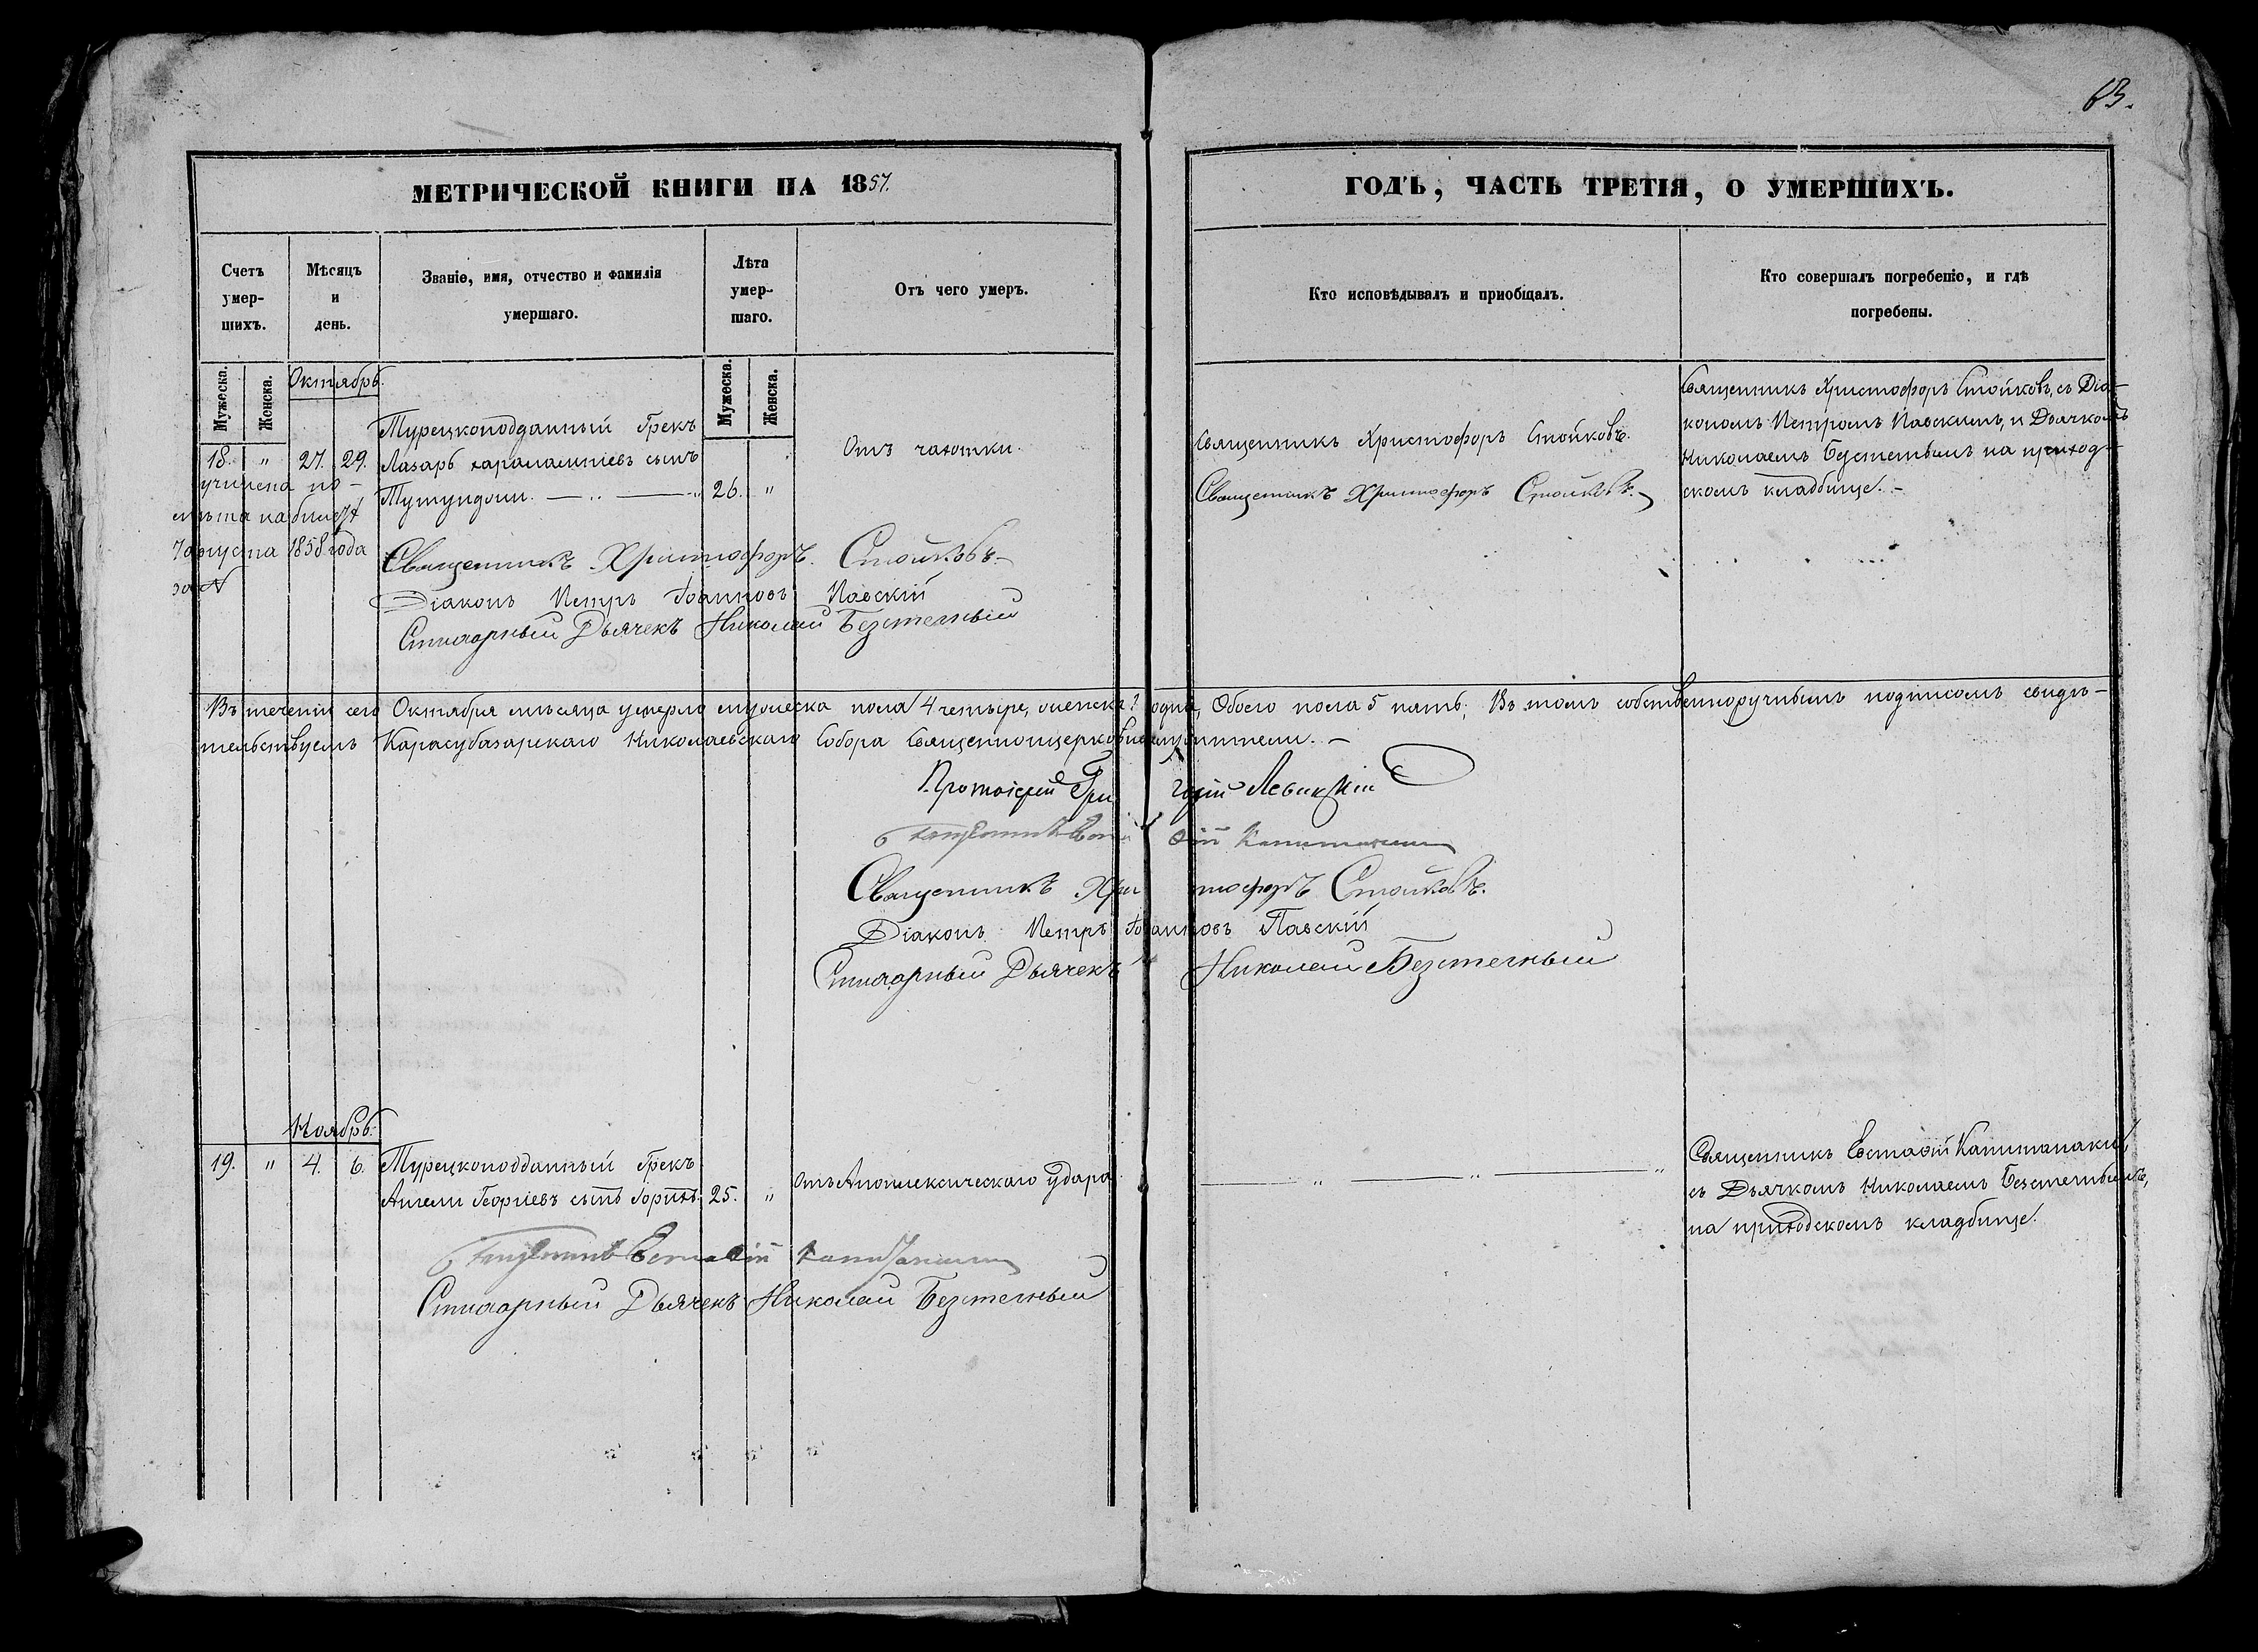 63.
МЕТРИЧЕСКОЙ КНИГИ НА 1857.
ГОДЪ, ЧАСТЬ ТРЕТІЯ, О УМЕРШИХЪ.
Счетъ
умер-
шихъ.
Мѣсяцъ
и
день.
Званіе, имя, отчество и фамилія
умершаго.
Лѣта
умер-
шаго.
Отъ чего умеръ.
Кто исповѣдывалъ и приобщалъ.
Кто совершалъ погребеніе, и гдѣ
погребены.
Мужеска.
Женска.
Октябрь.
Мужеска.
Женска.
18. " 27. 29.
Турецкоподданный Грекъ
Лазарь Харалампіевъ сынъ
Тутунджи. — " — " 26. "
Отъ чахотки.
Священникъ Христофоръ Стойковъ.
Священникъ Христофоръ Стойковъ.
Священникъ Христофоръ Стойковъ, съ Діа-
кономъ Петромъ Павскимъ, и Дьячкомъ
Николаемъ Безстетнымъ на приход-
скомъ кладбище. -
учинена по-
7 августа 1858 года
за №
Священникъ Христофоръ Стойковъ.
Діаконъ Петръ Іоанновъ Павскій
Стихарный Дьячекъ Николай Безстетный
Въ теченіи сего Октября мѣсяца умерло мужеска пола 4 четыре, женска 1 одна, Обоего пола 5 пять; Въ томъ собственноручнымъ подписомъ свидѣ-
тельствуемъ Карасубазарскаго Николаевскаго Собора Священноцерковнослужители. -
Протоіерей Григорій
Священникъ Евстафій Капитанаки
Священникъ Христофоръ Стойковъ.
Діаконъ Петръ Іоанновъ Павскій
Стихарный Дьячекъ Николай Безстетный
Ноябрь.
19. " 4. 6.
Турецкоподданный Грекъ
Ангели Георгіевъ сынъ 25. "
отъ Апоплексическаго удара
— " — " — "
Священникъ Евстафій Капитанаки,
съ Дьячкомъ Николаемъ Безстетнымъ,
на приходскомъ кладбище.
Священникъ Евстафій Капитанаки
Стихарный Дьячекъ Николай Безстетный